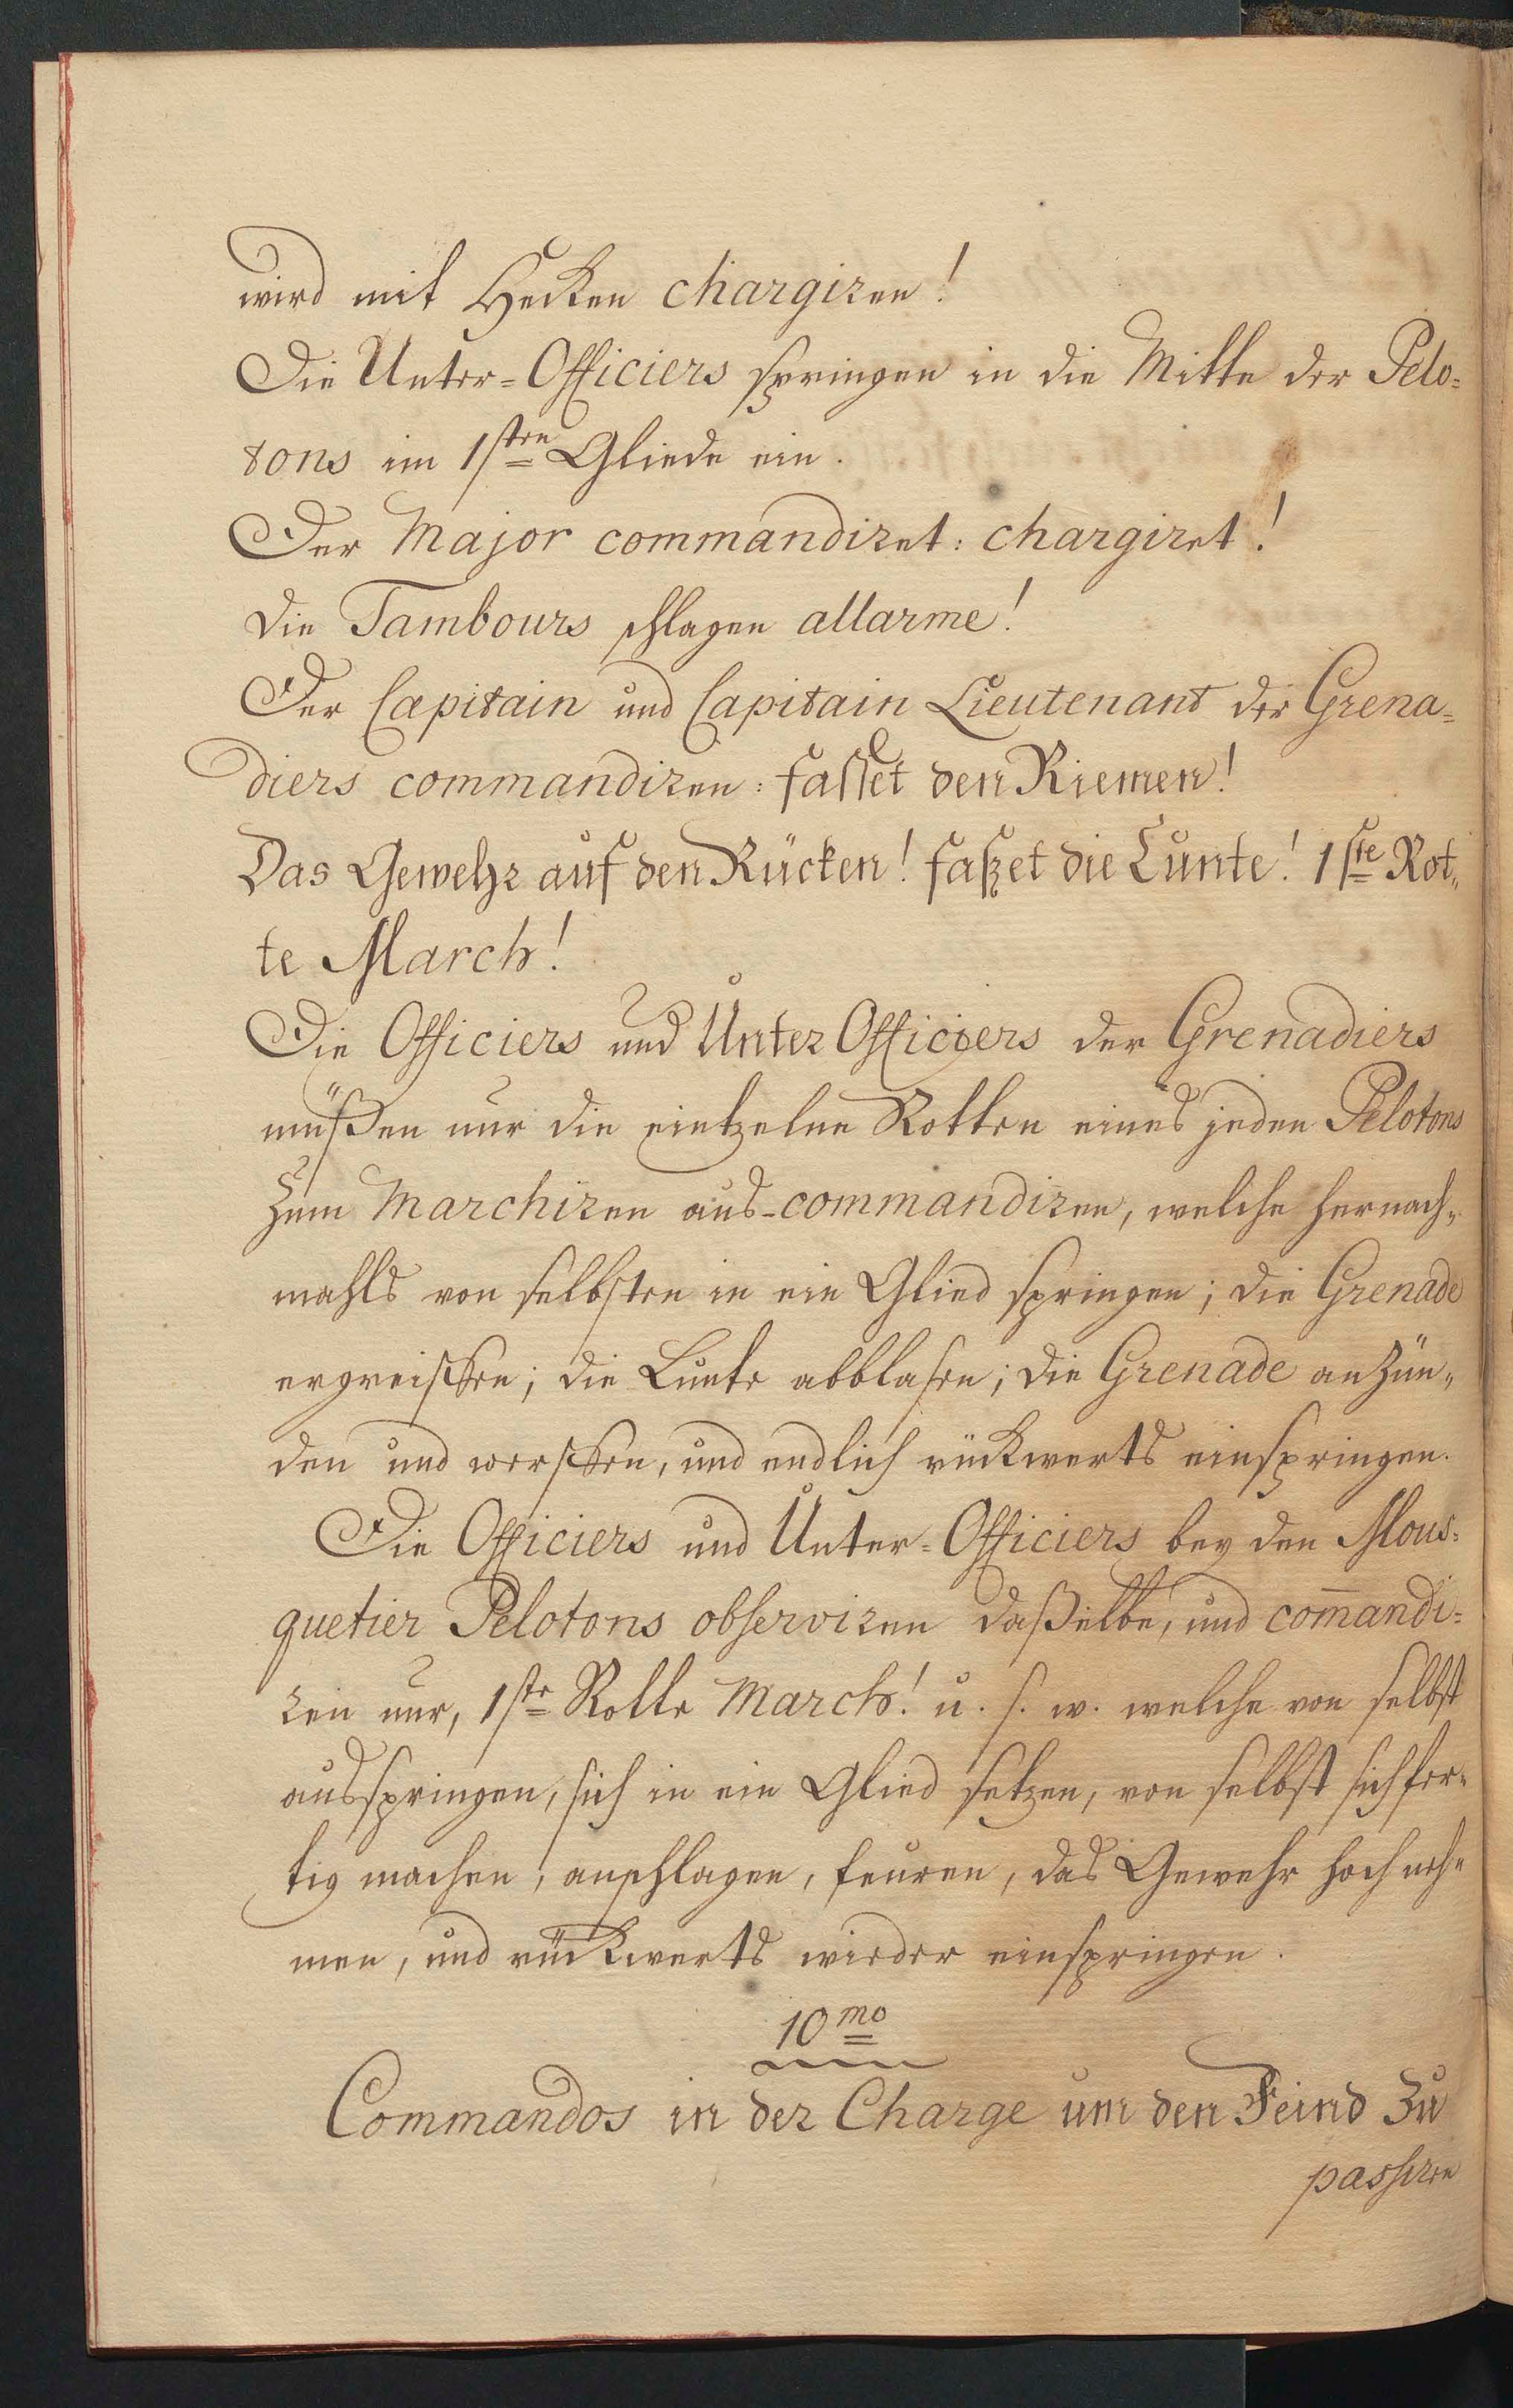 wird mit Hecken chargiren!
Die Unter-Officiers springen in die Mitte der Pelo=
tons im 1sten Gliede ein.
Der Major commandiret: chargiret!
die Tambours schlagen allarme!
Der Capitain und Capitain Lieutenant der Grena=
diers commandiren: fasset den Riemen!
Das Gewehr auf den Rücken! faßet die Lunte! 1ste Rot„
te March!
Die Officiers und Unter Officiers der Grenadiers
müßen nur die eintzelne Rotten eines jeden Pelotons
zum Marchiren aus-commandiren, welche hernach„
mahls von selbsten in ein Glied springen; die Grenade
ergreiffen; die Lunte abblasen; die Grenade anzün„
den und werffen, und endlich rückwerts einspringen.
Die Officiers und Unter-Officiers bey den Mous=
quetier Pelotons observiren daßelbe, und com̄andi=
ren nur, 1ste Rotte March! u. s. w. welche von selbst
ausspringen, sich in ein Glied setzen, von selbst sich fer„
tig machen, anschlagen, feuren, das Gewehr hoch neh„
men, und rückwerts wieder einspringen.
10mo
Commandos in der Charge um den Feind zu
passiren